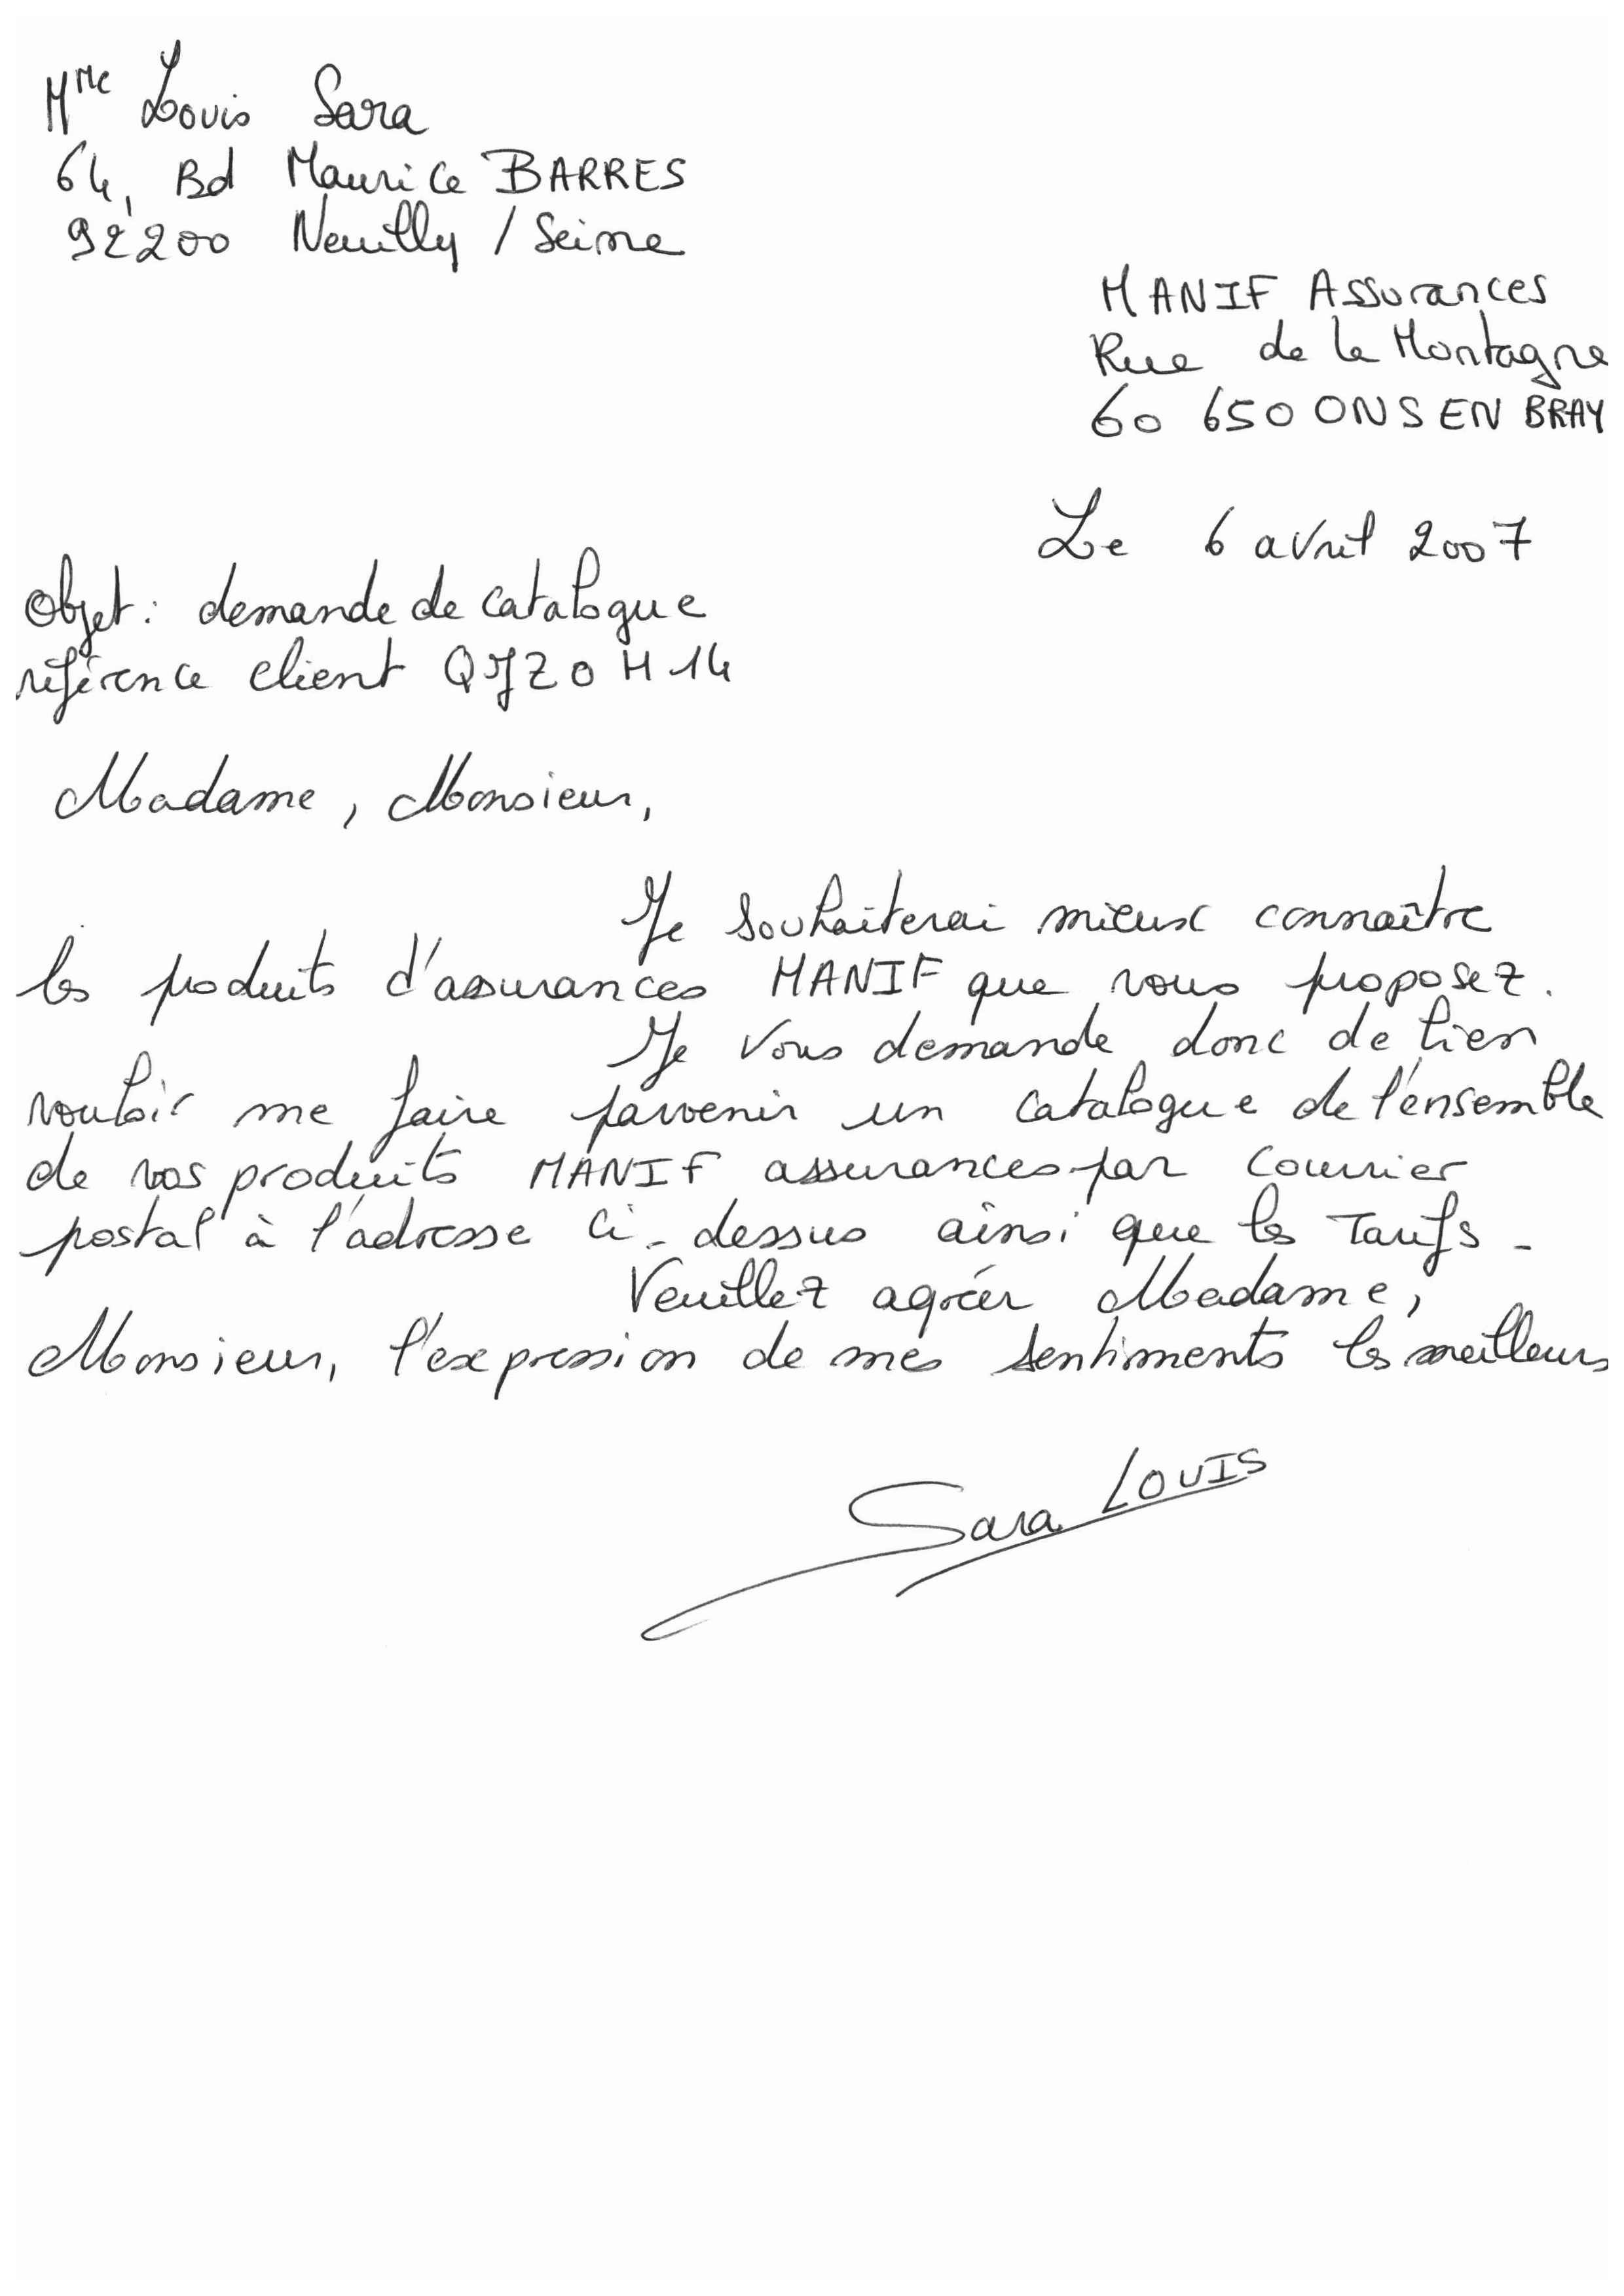 Mme Louis Sara
64, Bd Maurice BARRES
92200 Neuilly / Seine
MANIF Assurances
Rue de la Montagne
60 650 ONS EN BRAY
Le 6 avril 2007
Objet : demande de catalogue
référence client QJZOH14
Madame, Monsieur,
Je souhaiterai mieux connaître
les produits d'assurances MANIF que vous proposez.
Je vous demande donc de bien
vouloir me faire parvenir un catalogue de l'ensemble
de vos produits MANIF assurances par courrier
postal à l'adresse ci-dessus ainsi que les Tarifs -
Veuillez agréer Madame,
Monsieur, l'expression de mes sentiments les meilleurs
Sara LOUIS